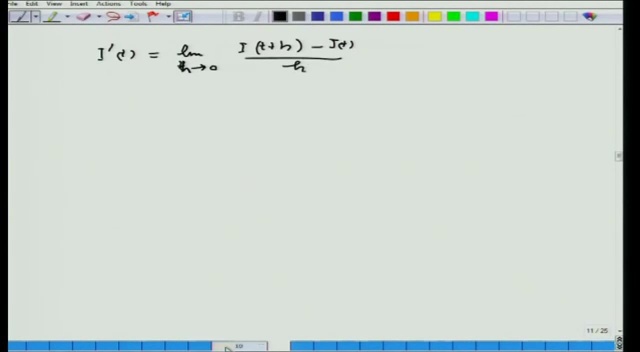 File Edit View Insert Actions Tools Help
I'(t) = lim h→0 I(t+h) - I(t) / h
11 / 25
10